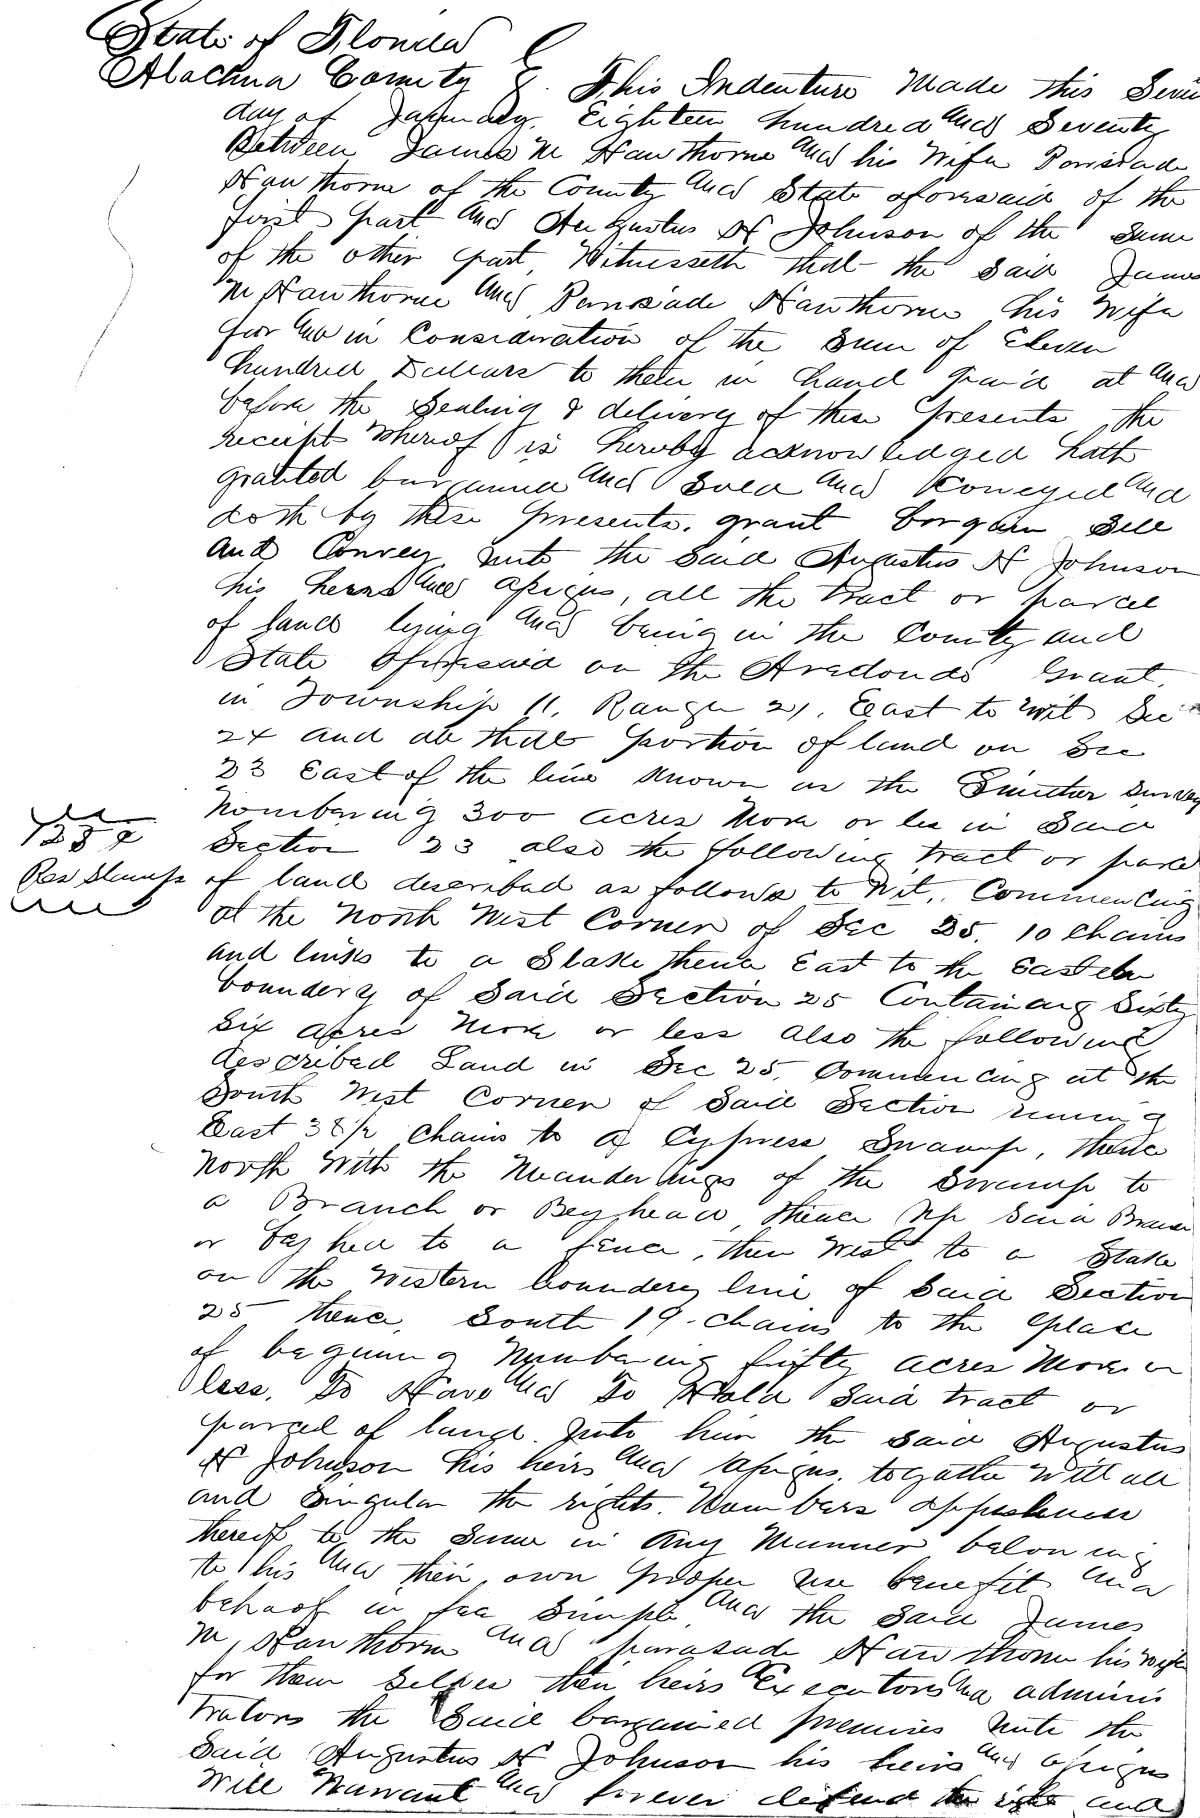 State of Florida
Alachua County } This Indenture Made this
day of January, Eighteen hundred and Seventy
Between James M Hawthorne and his Wife
Hawthorne of the County and State aforesaid of the
first part and Augustus H Johnson of the same
of the other part, Witnesseth that the said James
M Hawthorne and Hawthorne his Wife
for and in Consideration of the Sum of Eleven
hundred Dollars to them in hand paid at and
before the Sealing & delivery of these presents the
receipt Whereof is hereby acknowledged hath
granted bargained and Sold and Conveyed and
doth by these presents. grant bargain Sell
And Convey unto the Said Augustus H Johnson
his heirs and assigns, all the tract or parcel
of land lying and being in the County and
State Aforesaid on the Aredondo Grant.
in Township 11. Range 21. East to Wit Sec
24 and all that portion of land on Sec
23 East of the line Known as the survey
Numbering 300 acres More or less in Said
Section 23 also the following tract or parcel
Rev Stamps
of land described as follows to Wit,. Commencing
at the North West Corner of Sec 25. 10 Chains
and links to a Stake thence East to the Eastern
boundery of Said Section 25 Containing Sixty
Six acres More or less also the following
described Land in Sec 25. Commencing at the
South West Corner of Said Section running
East 38½ chains to a Cypress Swamp, thence
North With the Meanderings of the Swamp to
a Branch or Bayhead, thence up Said Branch
or bayhed to a fence, then West to a Stake
on the Western boundery line of Said Section
25 thence, South 19 chains to the place
of begining Numbering fifty acres More or
less. To Have and To Hold Said tract or
parcel of land. unto him the said Augustus
H Johnson his heirs and assigns. togather With all
and Singular the rights.
thereof to the Same in Any Manner belonging
to his and their own proper use benefit and
behoof in fee Simple and the Said James
M, Hawthorne and Hawthorne his Wife
for them Selves their heirs Executors and adminis
trators the Said bargained premises unto the
Said Augustus H Johnson his heirs and assigns
Will Warrant and forever defend the right and